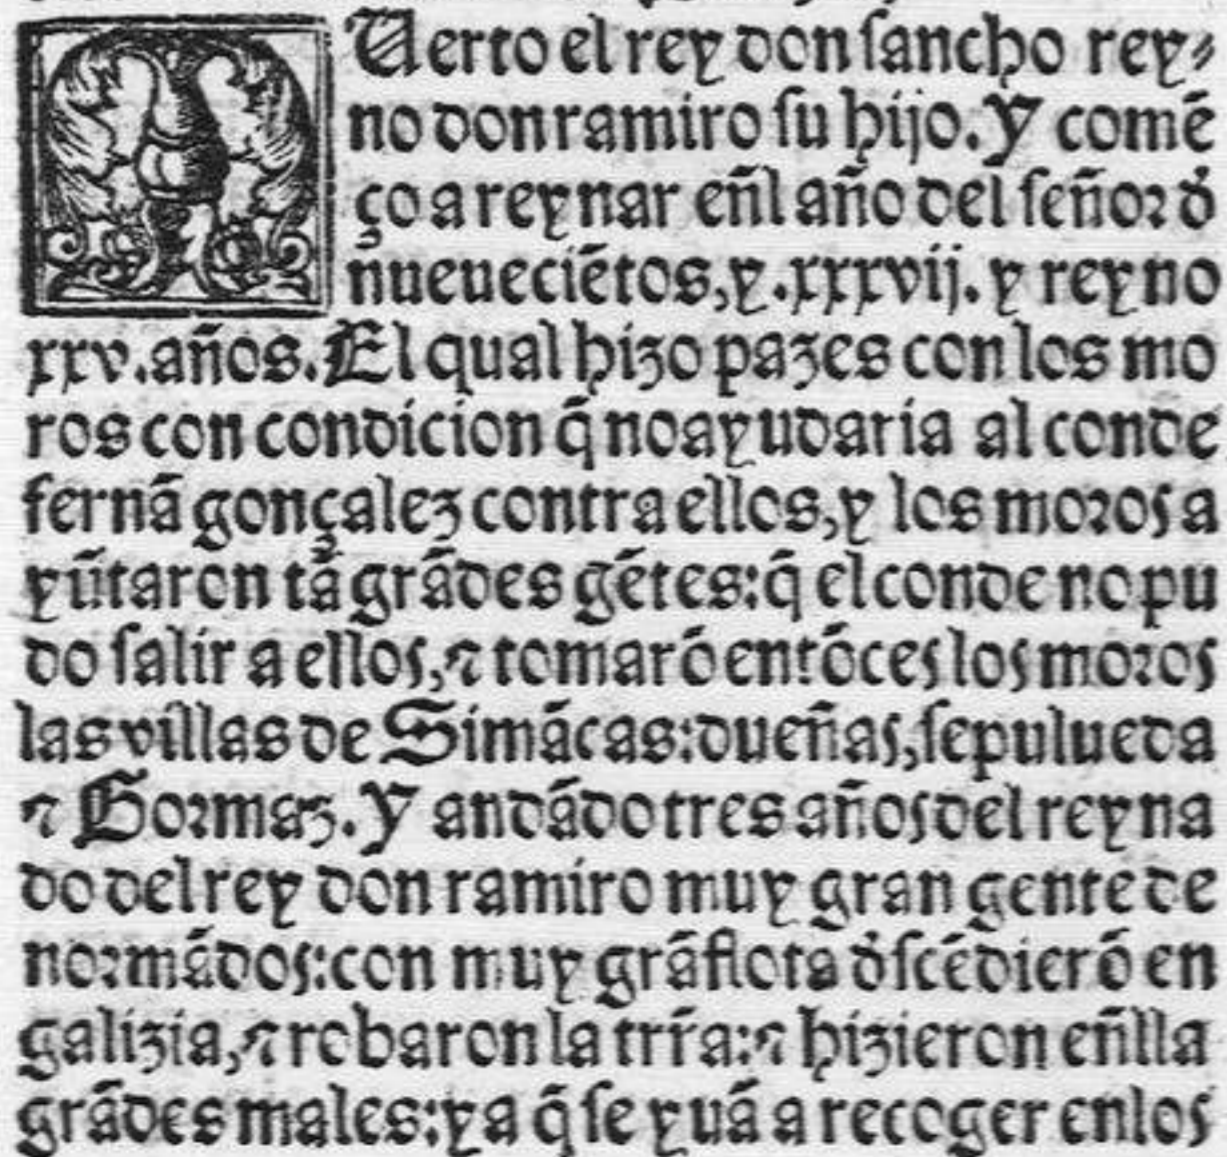 MUerto el rey don ſancho rey⸗
no don ramiro ſu hijo. Y comē
ço a reynar eñl año del ſeñor đ
ñueuecíētos, y .xxxvij. y reyno
xxv. años. El qual hizo pazes con los mo
ros con condicion q̄ no ayudaria al conde
fernā gonçalez contra ellos, y los moros a
yūtaron tā grādes gētes: q̄ el conde no pu
do ſalir a ellos, ⁊ tomarō entōces los moros
las villas de Simācas: dueñas, ſepulueda
⁊ Gormaz. Y andādo tres años del reyna
do del rey don ramiro muy gran gente de
normādos: con muy grā flota đſcēdierō en
galizia, ⁊ robaron la trr̄a: ⁊ hizieron eñlla
grādes males: ya q̄ ſe yuā a recoger enlos